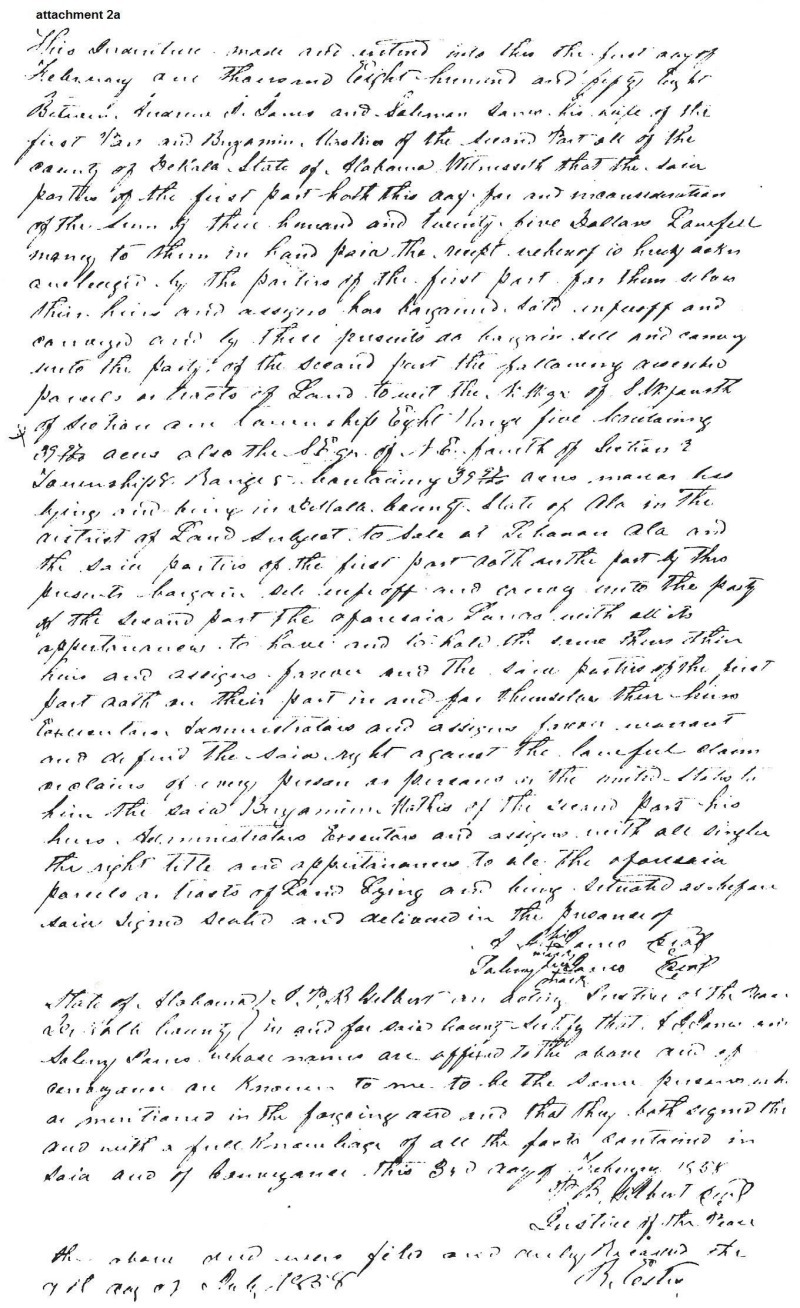 attachment 2a
This Indenture made and entered into this the first day of
February one Thousand Eight hundred and fifty Eight
Between Andrew J. and his wife of the
first Part and Benjamin of the Second Part all of the
county of DeKalb State of Alabama Witnesseth that the said
parties of the first part hath this day for and in consideration
of the sum of three hundred and twenty five Dollars Lawfull
money to them in hand paid the recept whereof is hereby
by the parties of the first part for them selves
their heirs and assigns has bargained sold and
conveyed and by these presents do bargain sell and convey
unto the party of the second part the following
parcels or tracts of Land to wit the of fourth
of section one township Eight Range five containing
39 acres also the S E qr of N. E. fourth of Section 2
Township 8 Range 5 containing 39 acres more or less
lying and being in DeKalb County State of Ala in the
district of Land subject to sale at Lebanon Ala and
the said parties of the first part doth on the part by this
presents bargain sell and convey unto the party
of the second part the aforesaid Lands with all its
appertenances to have and to hold the same their
heirs and assigns forever and the said parties of the first
part doth on their part in and for themselves their heirs
Executors Administrators and assigns forever warrant
and defend the said right against the lawful claim
or claims of every person or persons in the united States to
him the said Benjamin Mathis of the second Part his
heirs Administrators Executors and assigns with all
the right title and appertenances to all the aforesaid
parcels or tracts of Land Lying and being situated as before
said Signed Sealed and delivered in the presence of
his Seal
mark Seal
mark
State of Alabama I P. B. Gilbert an acting Justice of the Peace
DeKalb County in and for said County certify that
whose names are to the above
conveyance are Known to me to be the same persons
as mentioned in the and that they both signed
and with a full Knowledge of all the facts contained in
said of Conveyance this 3rd day of February 1858
P. B. Gilbert Seal
Justice of the Peace
the above deed were filed and duly Received the
day of July 1858 R. Estes